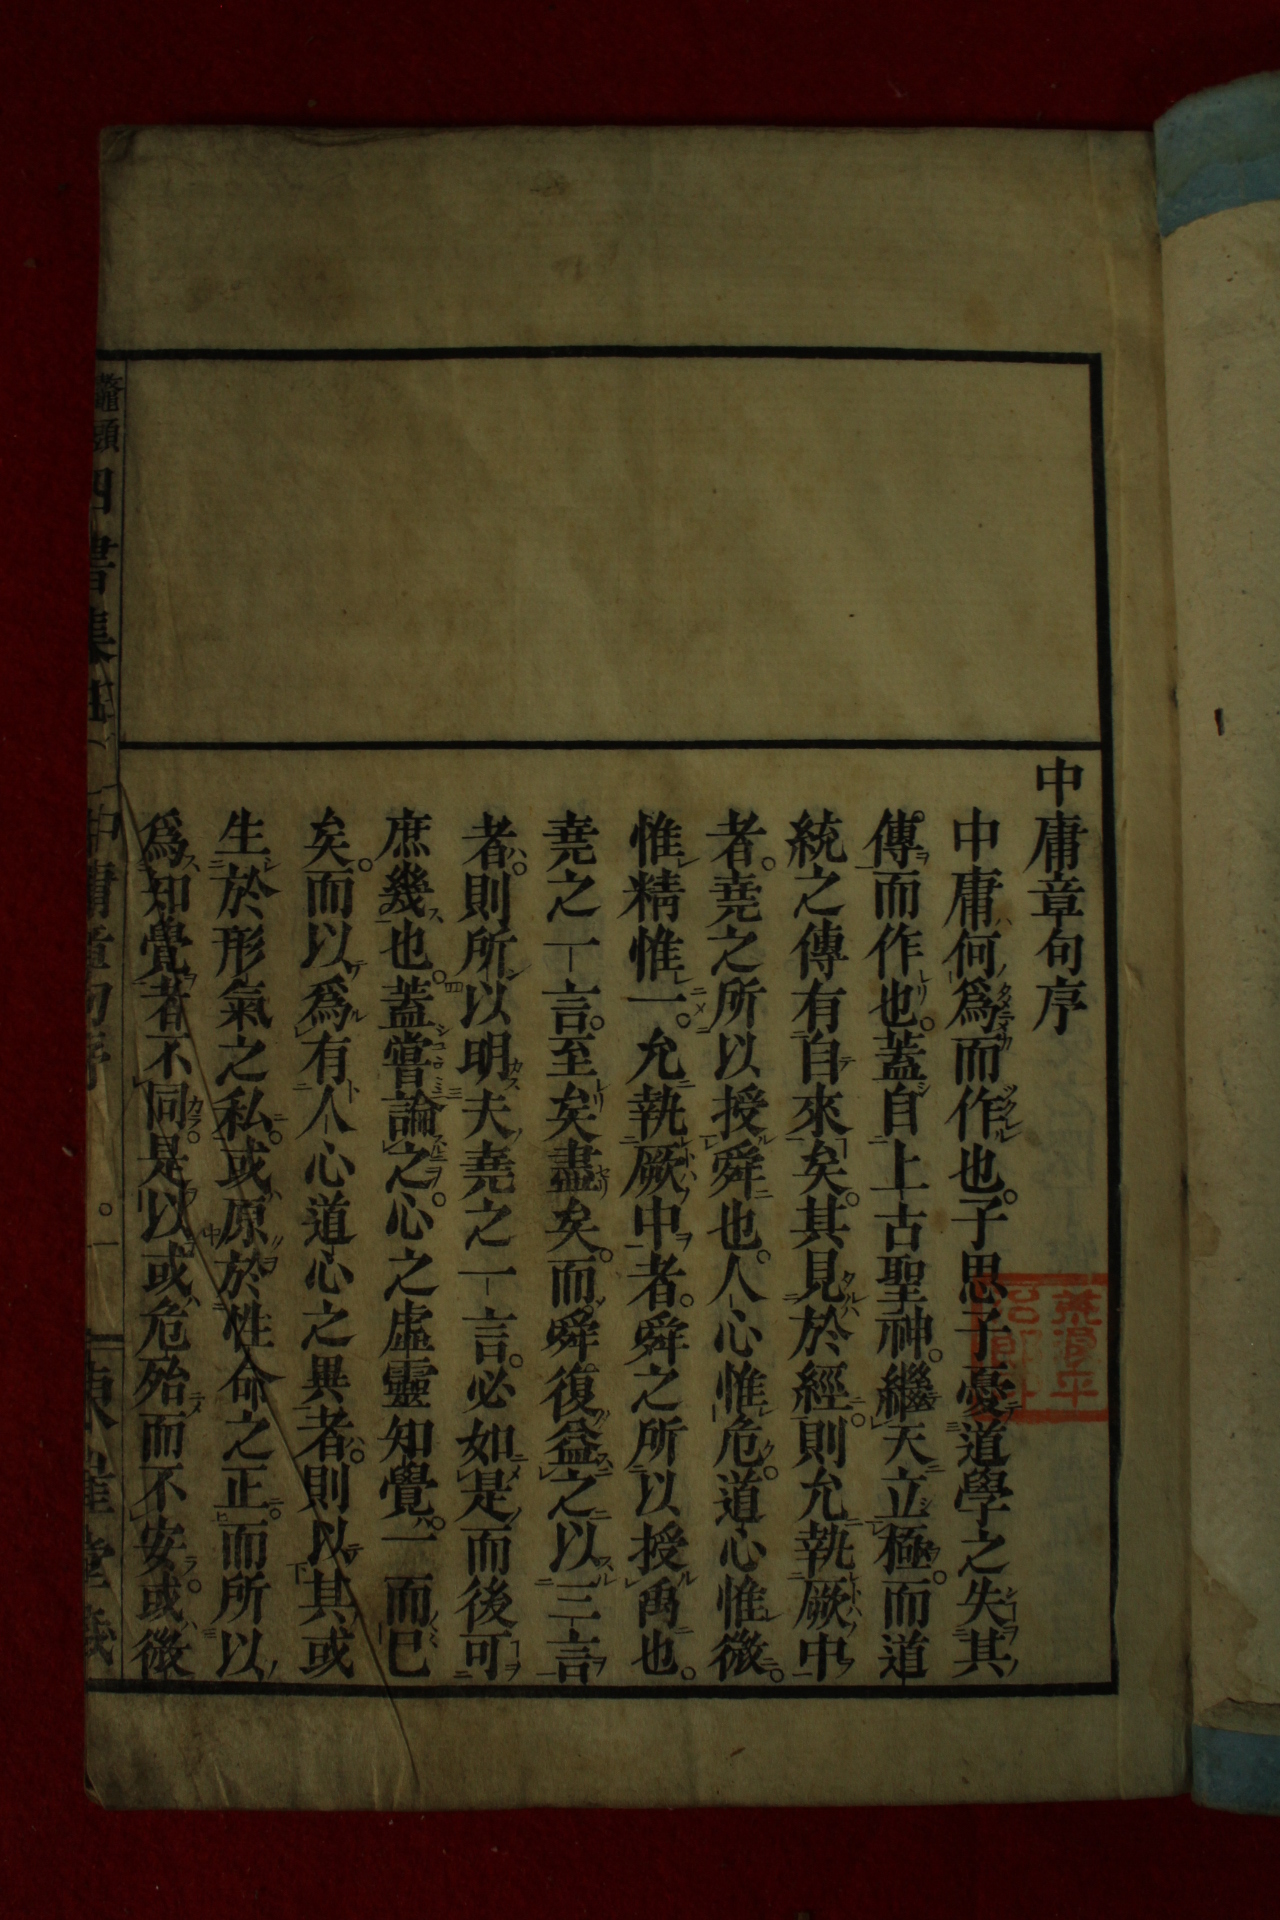 中庸章句序
中庸何爲而作也。子思子憂道學之失其
傳而作也。蓋自上古聖神。繼天立極。而道
統之傳有自來矣。其見於經。則允執厥中
者。堯之所以授舜也。人心惟危。道心惟微。
惟精惟一。允執厥中者。舜之所以授禹也。
堯之一言。至矣盡矣。而舜復益之以三言
者。則所以明夫堯之一言。必如是而後可
庶幾也。蓋嘗論之。心之虛靈知覺。一而已
矣。而以爲有人心道心之異者。則以其或
生於形氣之私。或原於性命之正。而所以
爲知覺者不同。是以或危殆而不安。或微
鼇頭四書集註 中庸章句序 一